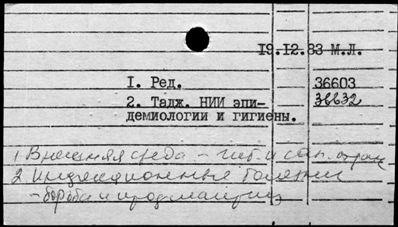 19.12.83 М.Л.
1. Ред. 36603
2. Тадж. НИИ эпи- 36632
демиологии и гигиены.
1 Внешняя среда - гиг. и сан. охрана
2 Инфекционные болезни
- борьба и профилактика